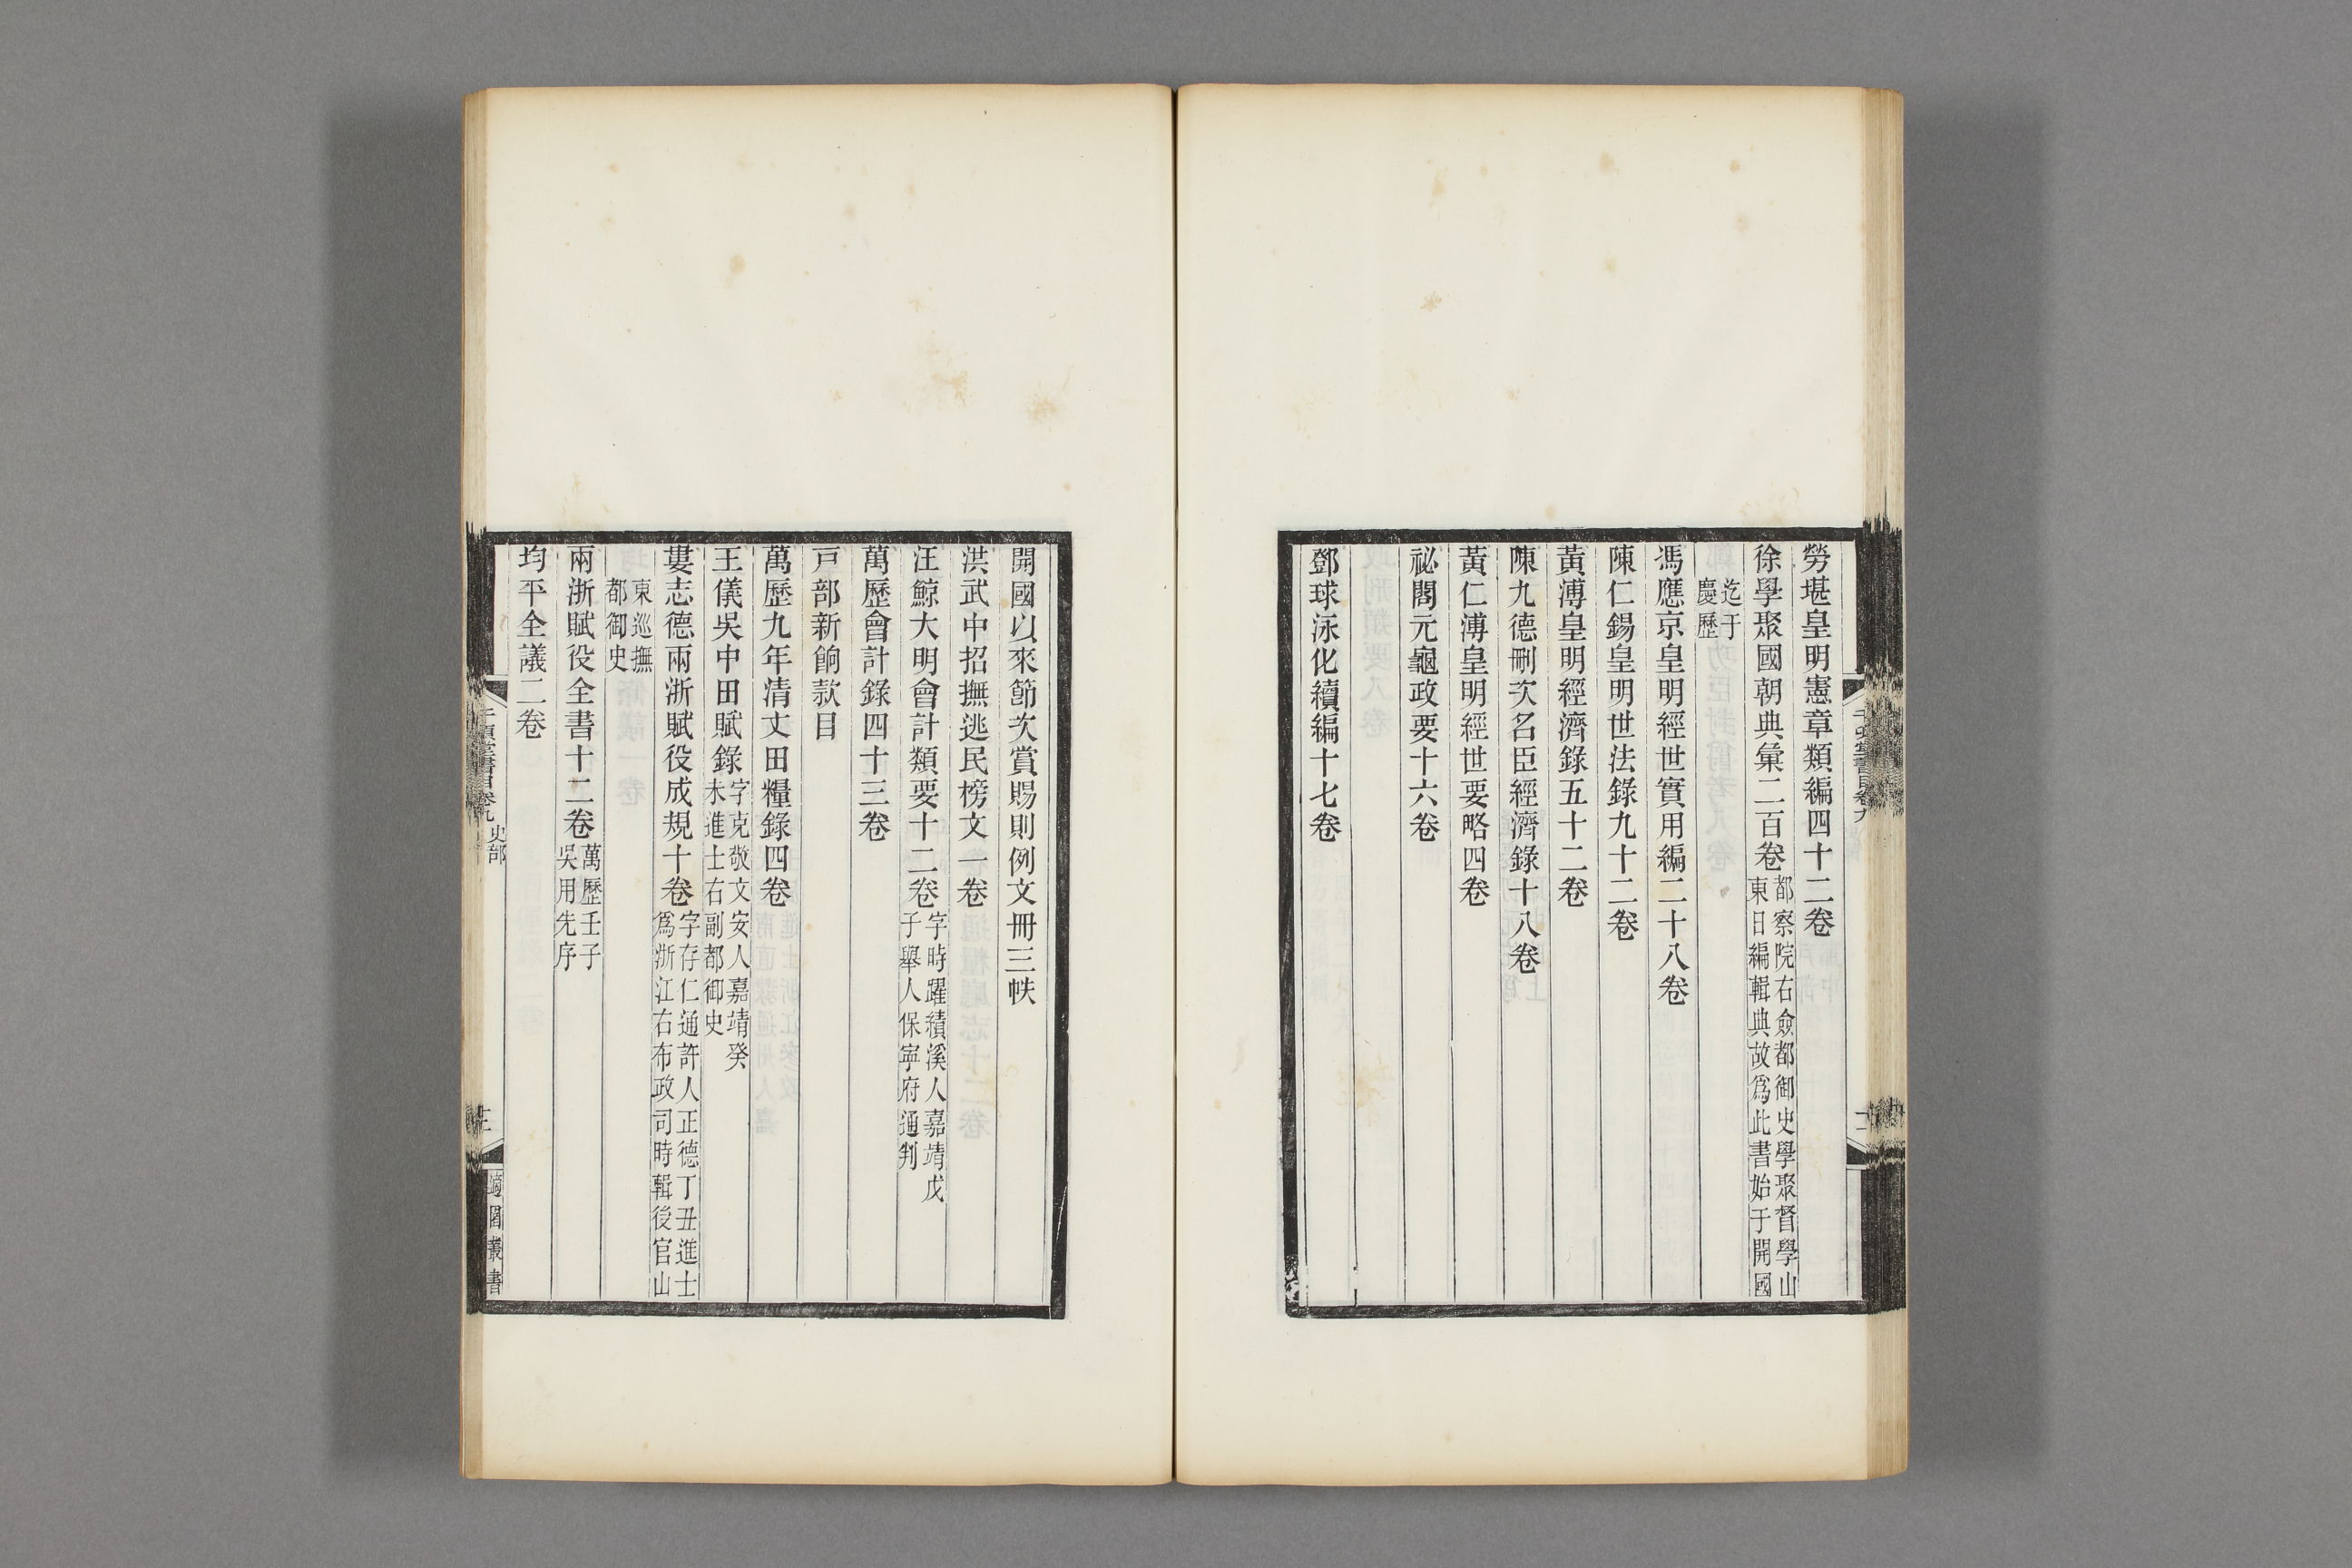 勞堪皇明憲章類編四十二卷
徐學聚國朝典彙二百卷
都察院右僉都御史學聚督學山
東日編輯典故爲此書始于開國
迄于
慶歷
馮應京皇明經世實用編二十八卷
陳仁錫皇明世法錄九十二卷
黃溥皇明經濟錄五十二卷
陳九德刪次名臣經濟錄十八卷
黃仁溥皇明經世要略四卷
祕閣元龜政要十六卷
鄧球泳化續編十七卷
開國以來節次賞賜則例文冊三帙
洪武中招撫逃民榜文一卷
汪鯨大明會計類要十二卷
字時躍績溪人嘉靖戊
子舉人保寧府通判
萬歷會計錄四十三卷
戸部新餉款目
萬歷九年清丈田糧錄四卷
王儀吳中田賦錄
字克敬文安人嘉靖癸
未進士右副都御史
婁志德兩浙賦役成規十卷
字存仁通許人正德丁丑進士
爲浙江右布政司時輯後官山
東巡撫
都御史
兩浙賦役全書十二卷
萬歷壬子
吳用先序
均平全議二卷
千頃堂書目卷九
史部
適園叢書